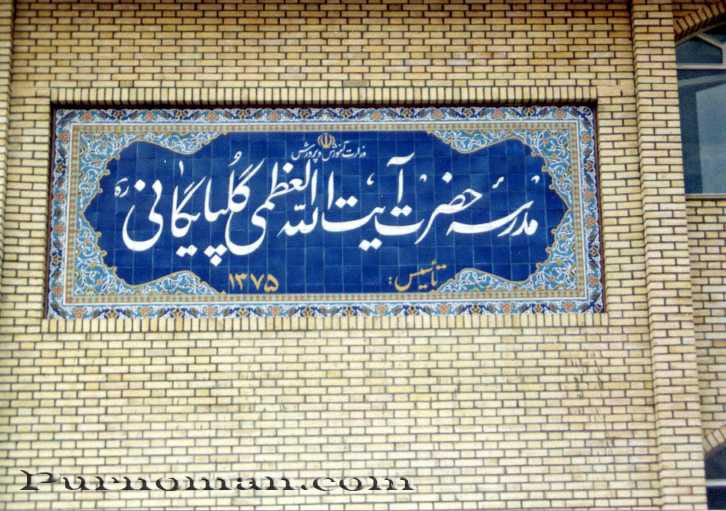 وزارت آموزش و پرورش
مدرسه حضرت آیت الله العظمی گلپایگانی ره
تأسیس: ۱۳۷۵
Purnoman.com